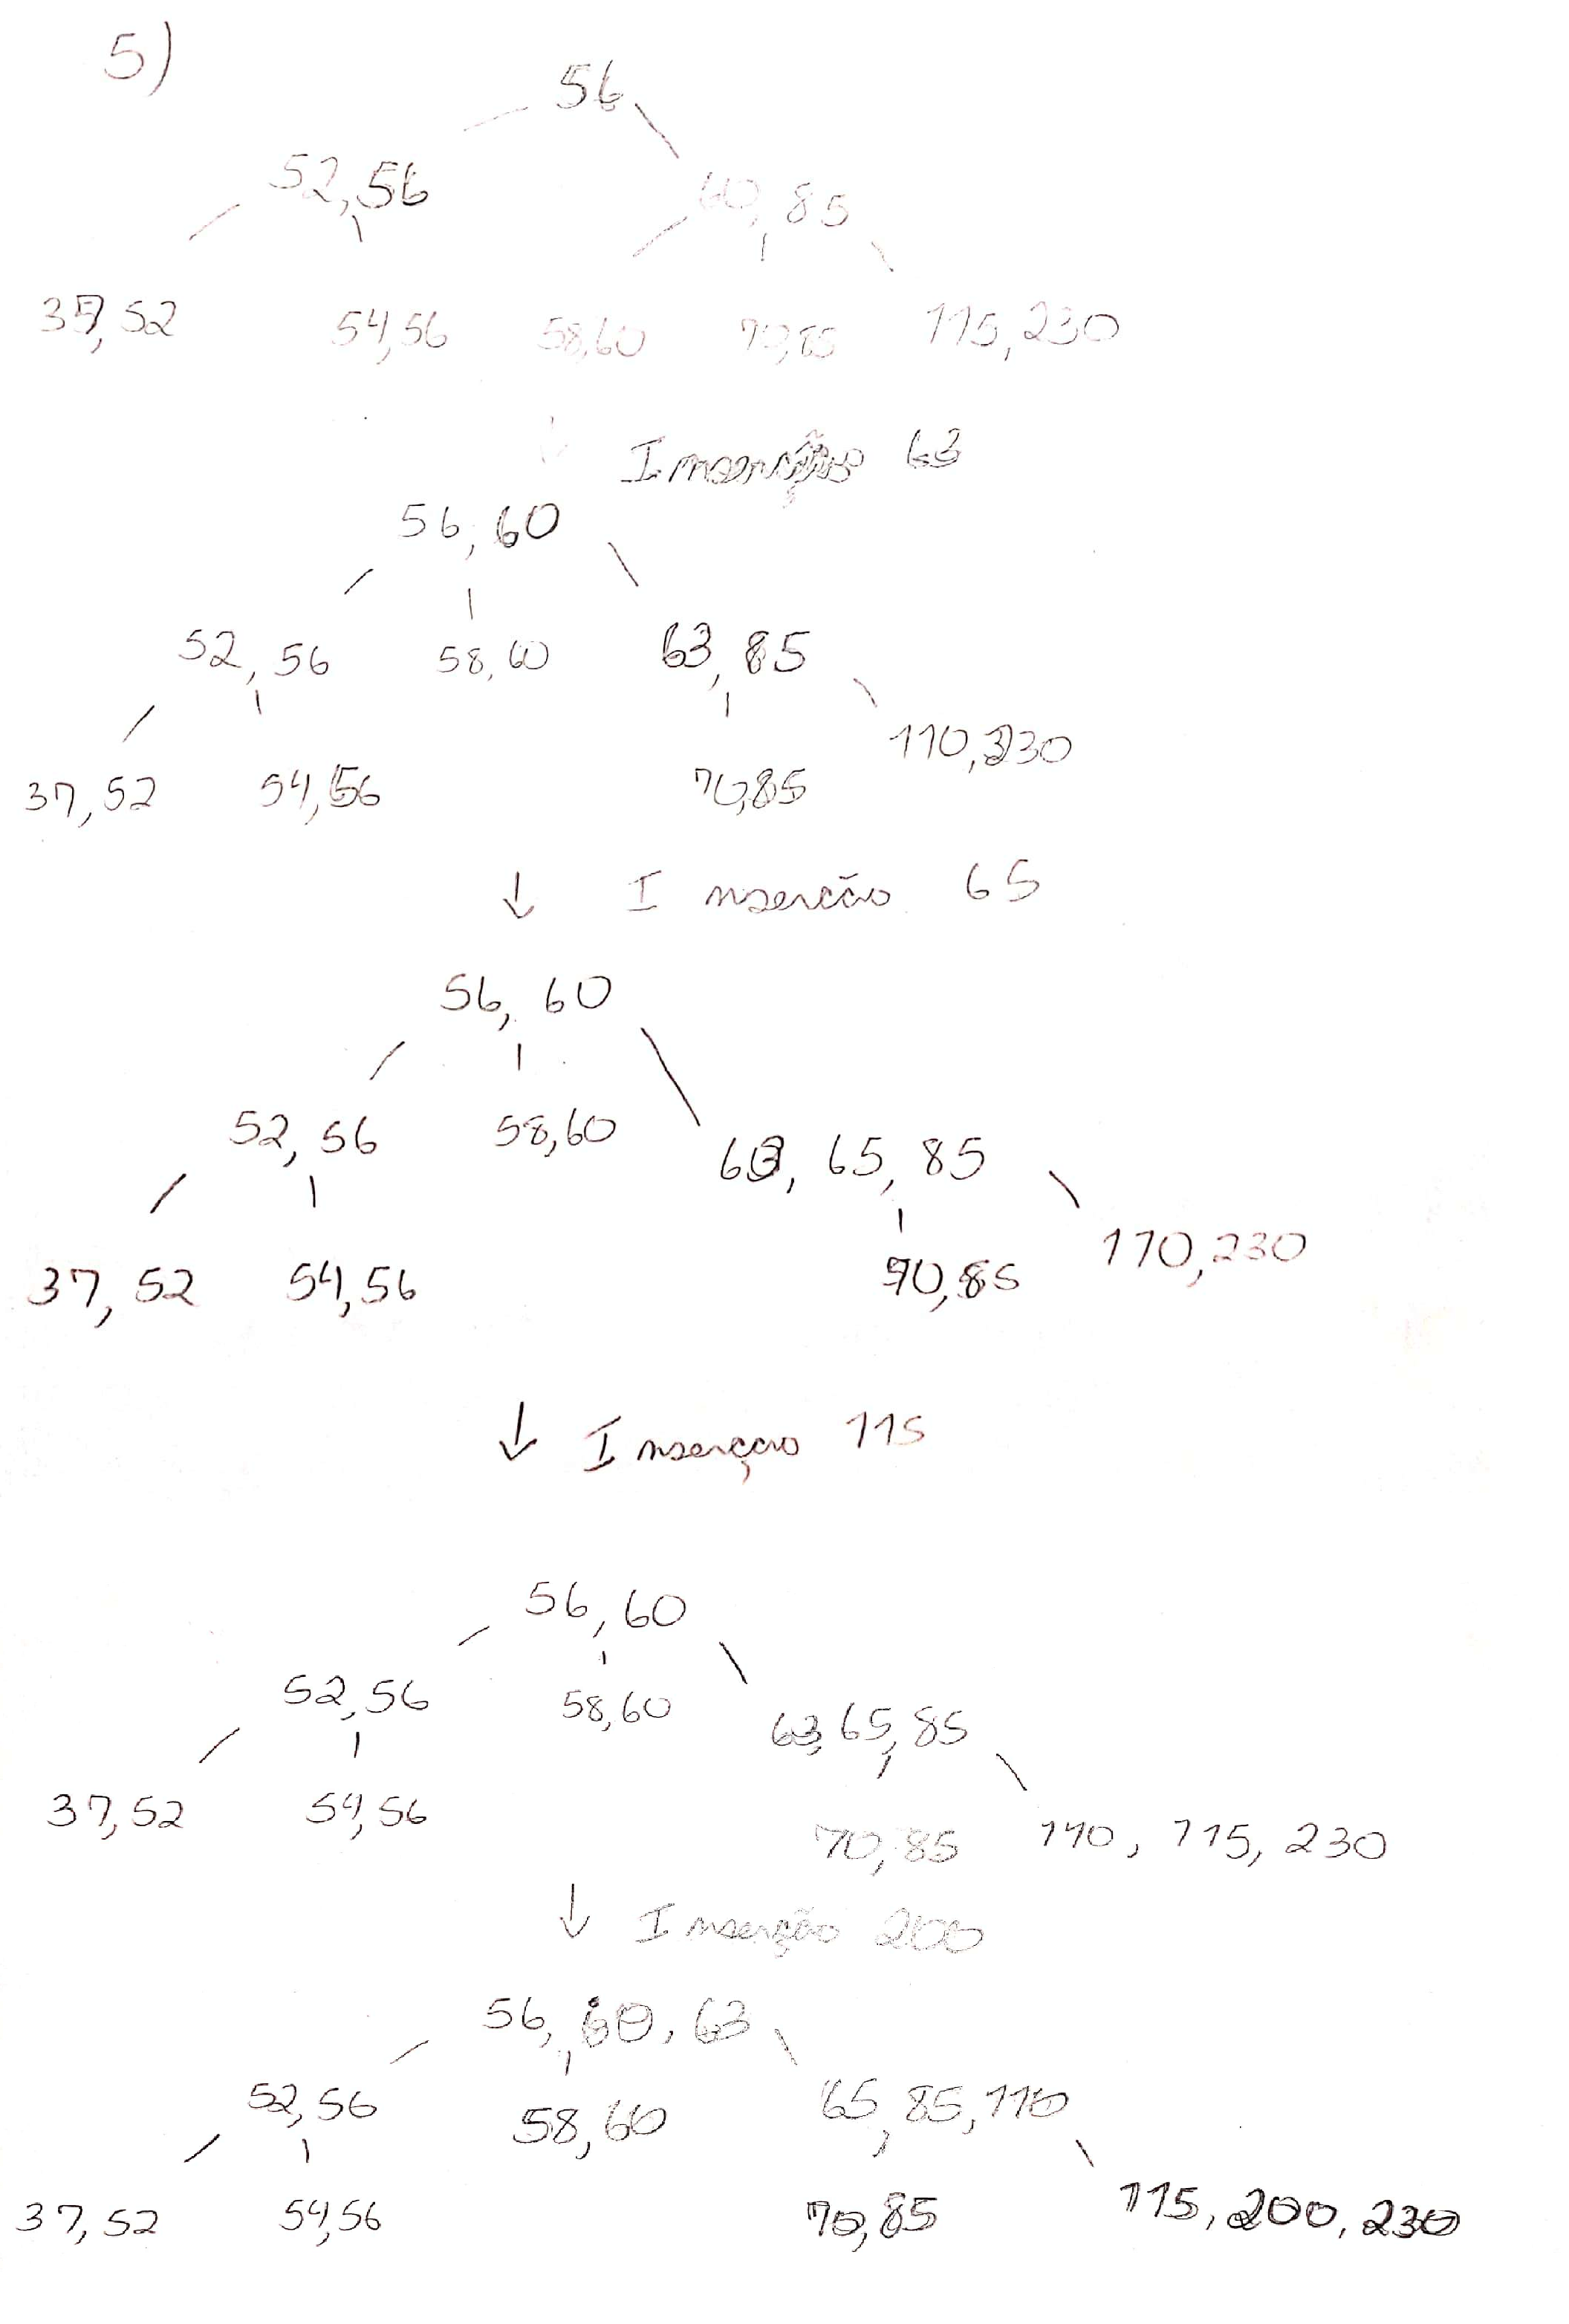 5)
56
52,56 60,85
37,52 54,56 58,60 70,85 115,230
↓ Inserção 63
56, 60
52, 56 58,60 63, 85
110,230
37,52 54,56 70,85
↓ Inserção 65
56, 60
52, 56 58,60 63, 65, 85
37, 52 54,56 70,85 110,230
↓ Inserçao 115
56,60
52,56 58,60 63,65,85
37,52 54,56 70,85 110, 115, 230
↓ Inserção 200
56, 60, 63
52,56 58,60 65, 85,110
37,52 54,56 70,85 115, 200, 230